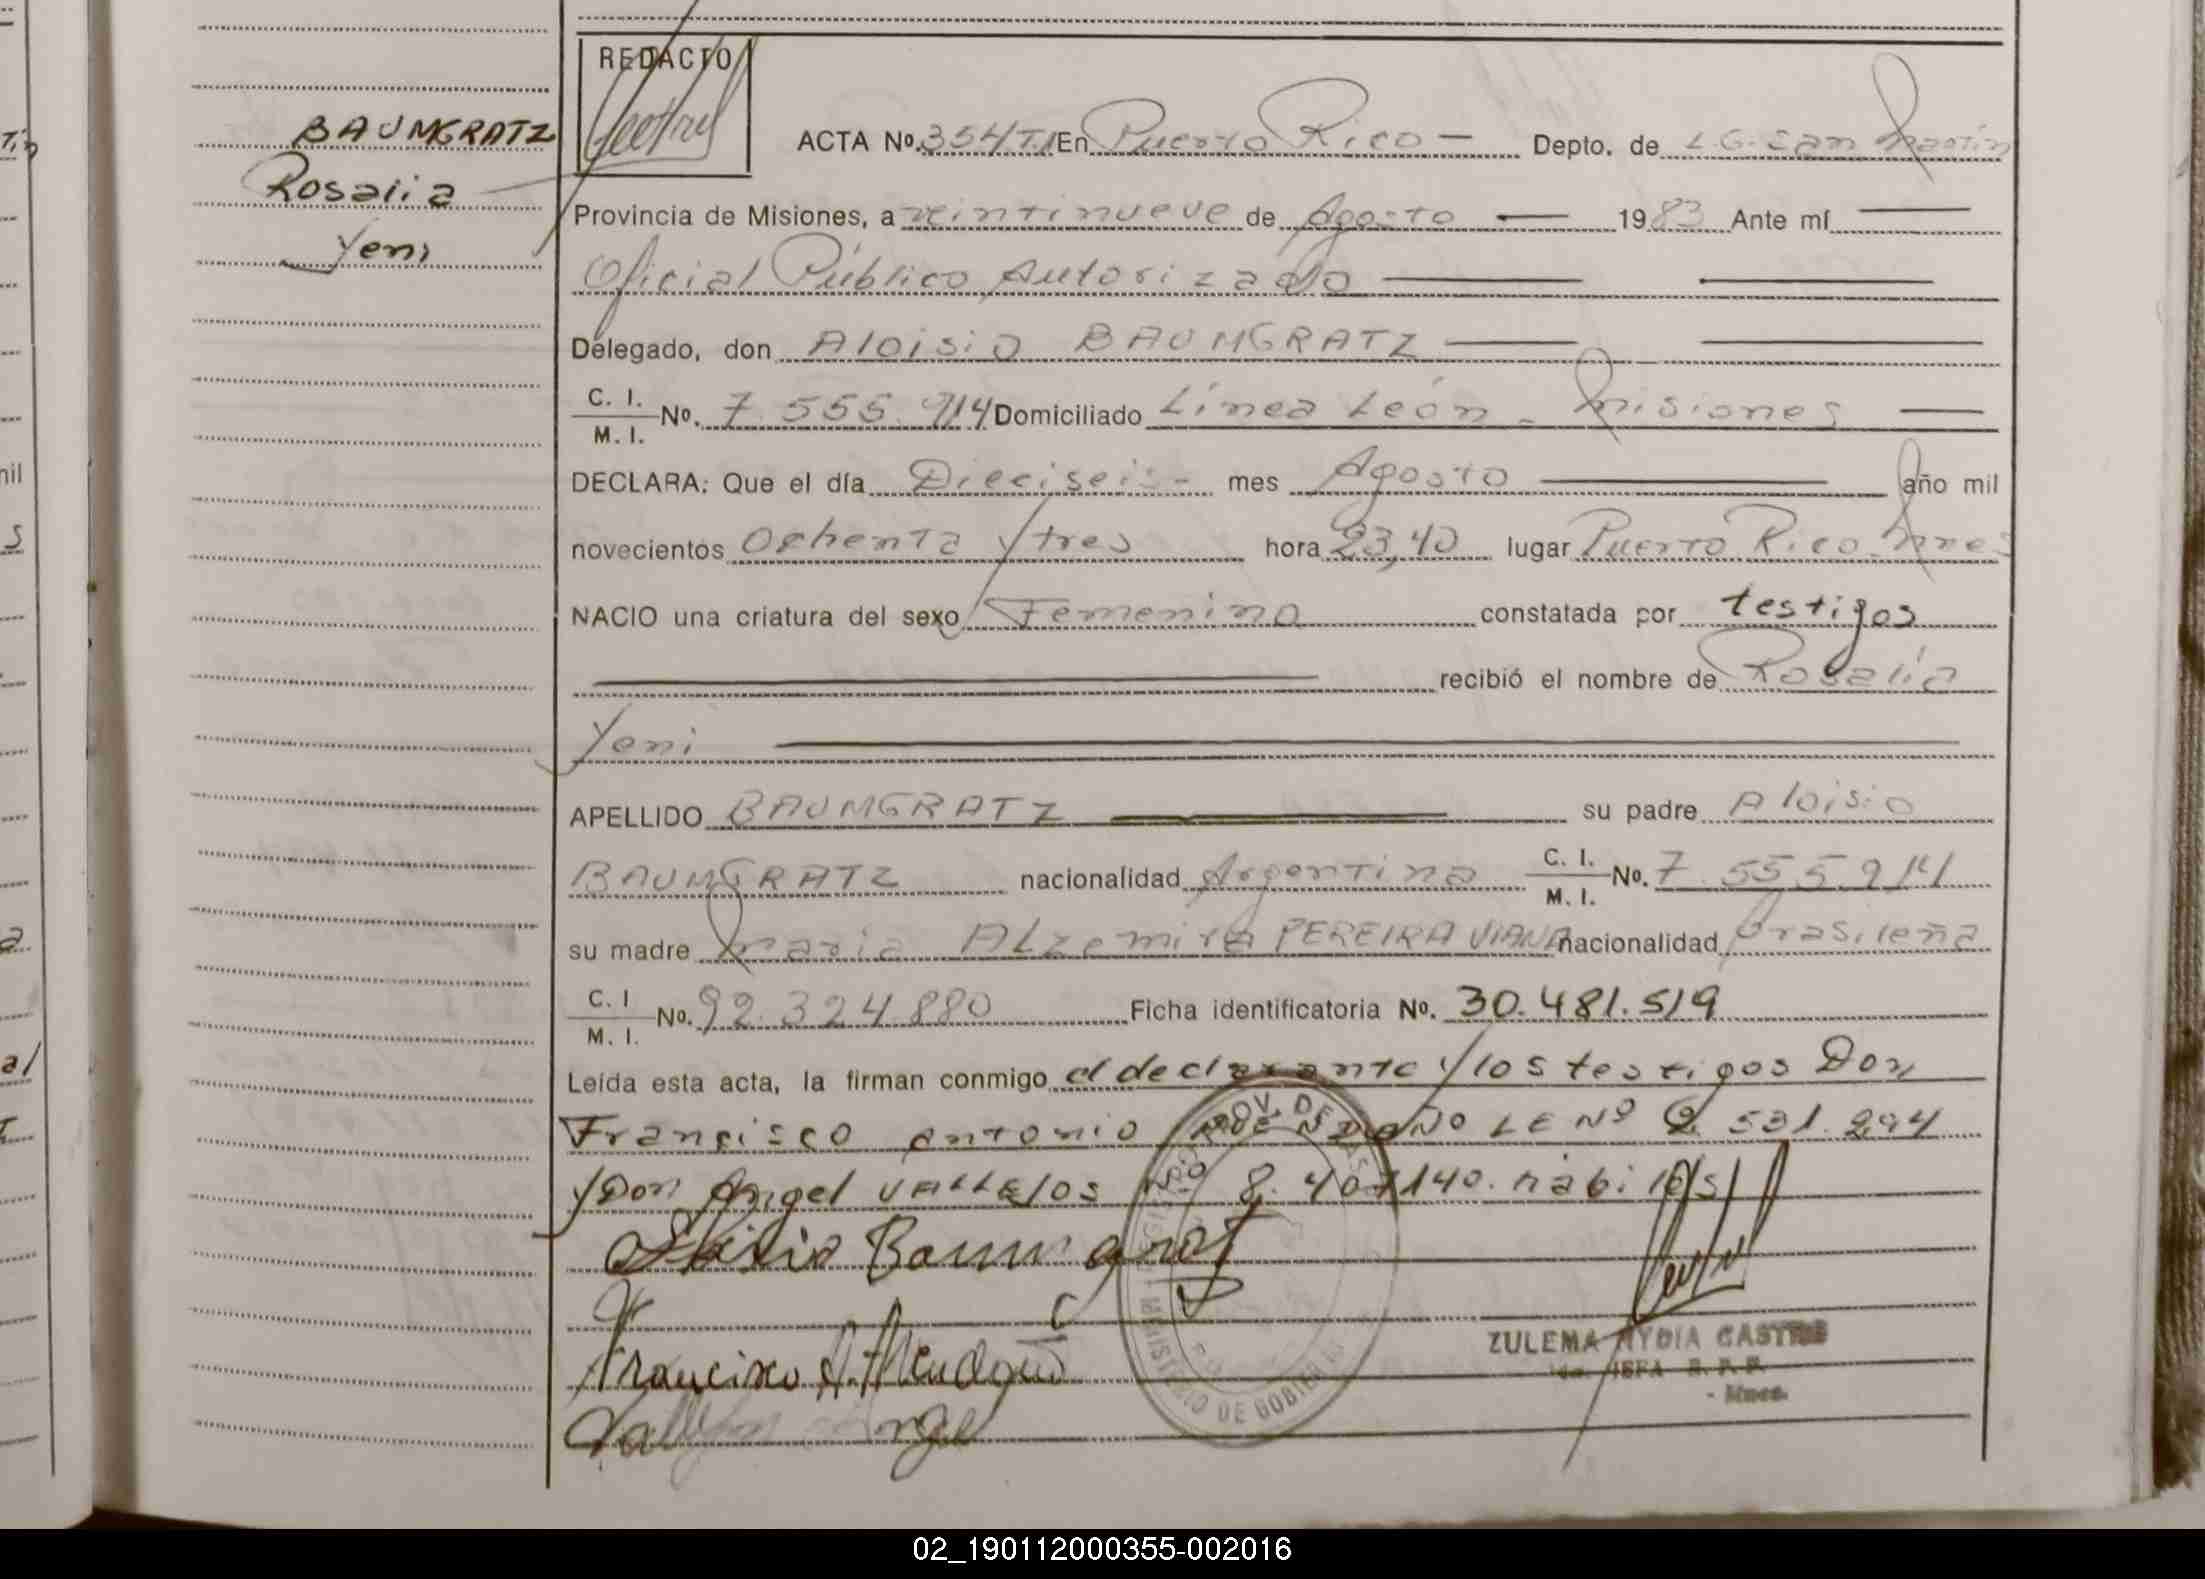 BAUMGRATZ
Rosalia
Yeni
REDACTO
ACTA Nº. 354 T.I En Puerto Rico — Depto. de L.G. San Martín
Provincia de Misiones, a veintinueve de Agosto — 1983 Ante mí
Oficial Público Autorizado
Delegado, don Aloisio BAUMGRATZ
C. I. / M. I. Nº. 7.555.914 Domiciliado Línea León - Misiones
DECLARA: Que el día Dieciseis - mes Agosto año mil
novecientos Ochenta y tres hora 23,40 lugar Puerto Rico Mnes
NACIO una criatura del sexo Femenino constatada por testigos
recibió el nombre de Rosalía
Yeni
APELLIDO BAUMGRATZ su padre Aloisio
BAUMGRATZ nacionalidad Argentina C. I. / M. I. Nº. 7.555.914
su madre Maria Alzemira PEREIRA VIANA nacionalidad brasileña
C. I / M. I. Nº. 92.324.880 Ficha identificatoria Nº. 30.481.519
Leída esta acta, la firman conmigo el declarante y los testigos Don
Francisco Antonio LE Nº 531.
y Don Angel VALLEJOS Nº 8. 140. habiles
Francisco A.
Angel
ZULEMA NYDIA CASTRO
- Mnes.
PROV. DE MISIONES
MINISTERIO DE GOBIERNO
02_190112000355-002016